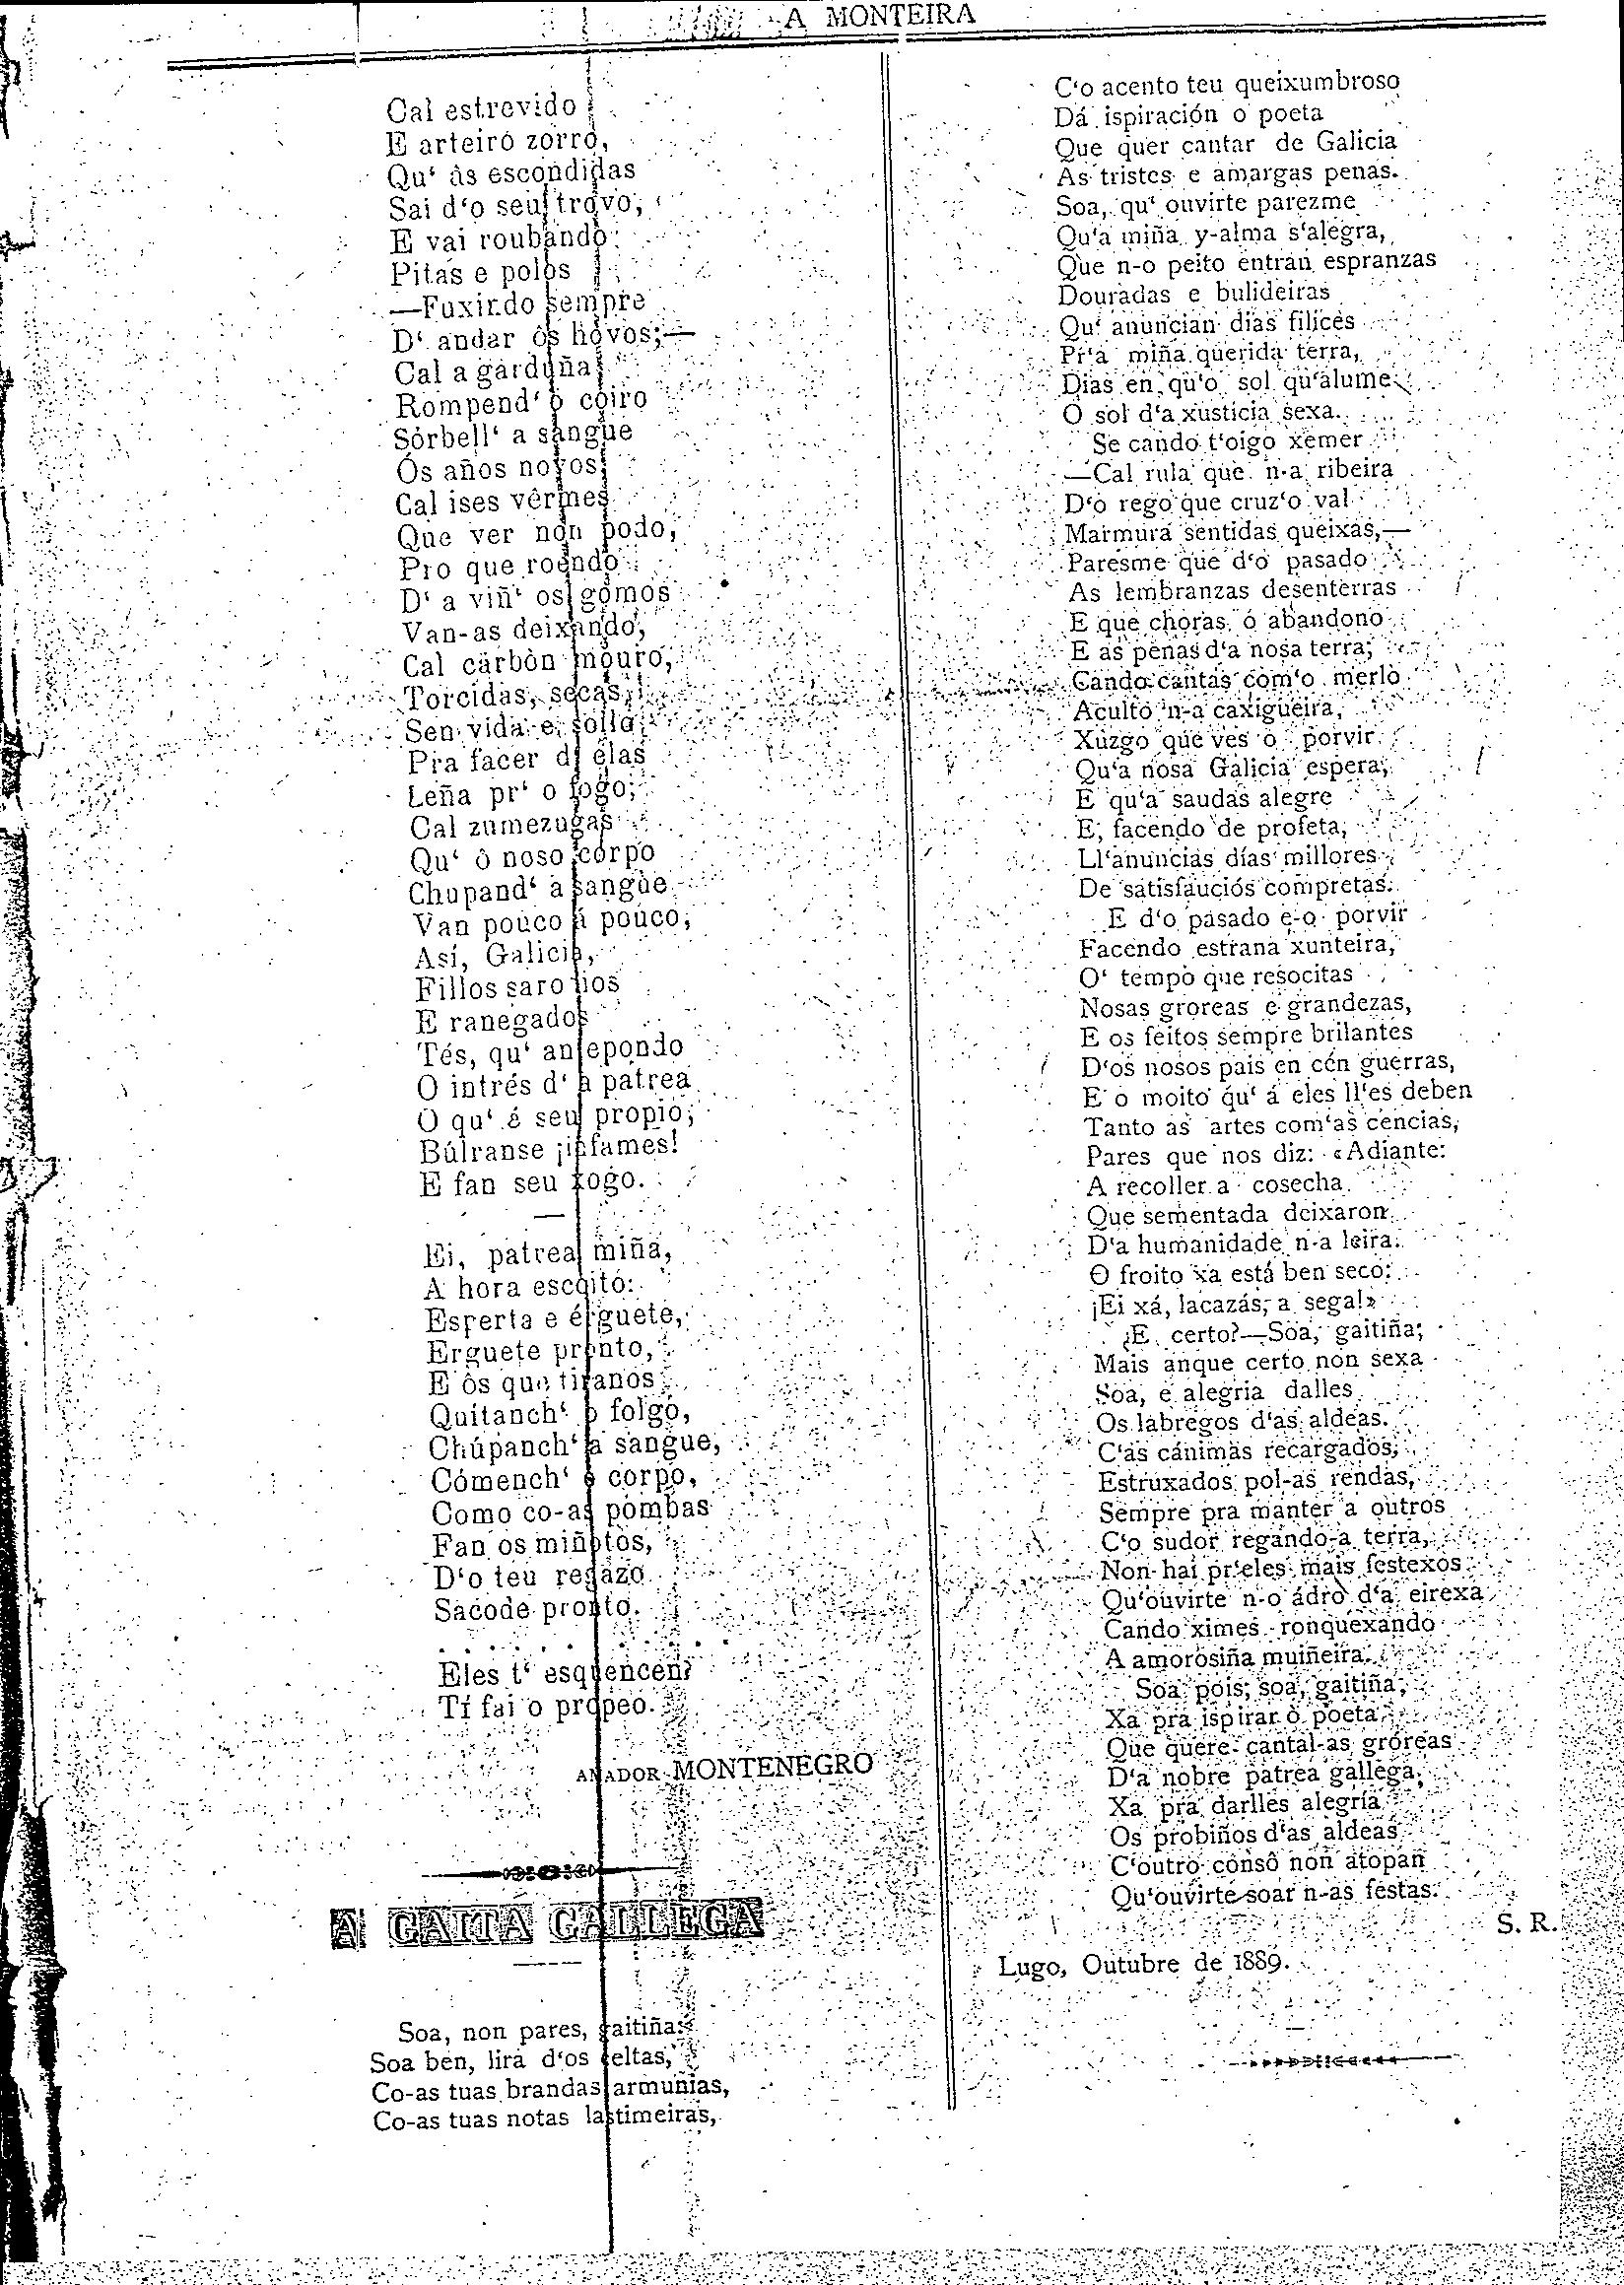 A MONTEIRA
Cal estrevido
E arteiro zorro,
Qu‘ ás escondidas
Sai d‘o seu trovo,
E vai roubando
Pitas e polos
—Fuxindo sempre
D‘ andar ós hovos;—
Cal a garduña
Rompend‘ o coiro
Sórbell‘ a sangue
Ós años novos
Cal ises vérmes
Que ver non podo,
Pro que roendo
D‘ a viñ‘ os gomos
Van-as deixando,
Cal carbón mouro,
Torcidas, secas,
Sen vida e sollo
Pra facer d‘ elas
Leña pr‘ o fogo;
Cal zumezugas
Qu‘ ô noso corpo
Chupand‘ a sangue
Van pouco á pouco,
Así, Galicia,
Fillos saroños
E ranegados
Tés, qu‘ antepondo
O intrés d‘ a patrea
O qu‘ é seu propio,
Búlranse ¡infames!
E fan seu xogo.
—
Ei, patrea miña,
A hora escoito:
Esperta e érguete,
Erguete pronto,
E ôs que tiranos
Quitanch‘ o folgo,
Chúpanch‘ a sangue,
Cómench‘ o corpo,
Como co-as pombas
Fan os miñotos,
D‘o teu regazo
Sacode pronto.
. . . . . . . . . . . .
Eles t‘ esquencen?
Tí fai o propeo.
AMADOR MONTENEGRO
A GAITA GALLEGA
Soa, non pares, gaitiña:
Soa ben, lira d‘os celtas,
Co-as tuas brandas armuñias,
Co-as tuas notas lastimeiras,
C‘o acento teu queixumbroso
Dá ispiración o poeta
Que quer cantar de Galicia
As tristes e amargas penas.
Soa, qu‘ ouvirte parezme
Qu‘a miña y-alma s‘alegra,
Que n-o peito entran espranzas
Douradas e bulideiras
Qu‘ anuncian dias filices
Pr‘a miña querida terra,
Dias en qu‘o sol qu‘alume
O sol d‘a xusticia sexa.
Se cando t‘oigo xemer
—Cal rula que n-a ribeira
D‘o rego que cruz‘o val
Marmura sentidas queixas,—
Paresme que d‘o pasado
As lembranzas desenterras
E que choras ó abandono
E as penas d‘a nosa terra;
Cando cantas com‘o merlo
Aculto n-a caxigueira,
Xuzgo que ves o porvir
Qu‘a nosa Galicia espera,
E qu‘a saudas alegre
E, facendo de profeta,
Ll‘anuncias días millores
De satisfauciós compretas.
E d‘o pasado e-o porvir
Facendo estrana xunteira,
O‘ tempo que resocitas
Nosas groreas e grandezas,
E os feitos sempre brilantes
D‘os nosos pais en cén guerras,
E o moito qu‘ á eles ll‘es deben
Tanto as artes com‘as cencias,
Pares que nos diz: «Adiante:
A recoller a cosecha
Que sementada deixaron
D‘a humanidade n-a leira.
O froito xa está ben seco:
¡Ei xá, lacazás, a sega!»
¿E certo?—Soa, gaitiña;
Mais anque certo non sexa
Soa, e alegria dalles
Os labregos d‘as aldeas.
C‘as cánimas recargados,
Estruxados pol-as rendas,
Sempre pra manter a outros
C‘o sudor regando a terra,
Non hai pr‘eles mais festexos
Qu‘ouvirte n-o ádro d‘a eirexa
Cando ximes ronquexando
A amorosiña muiñeira.
Soa pois, soa, gaitiña,
Xa pra ispirar ô poeta
Que quere cantal-as gróreas
D‘a nobre patrea gallega,
Xa pra darlles alegría
Os probiños d‘as aldeas
C‘outro consô non atopan
Qu‘ouvirte soar n-as festas.
S. R.
Lugo, Outubre de 1889.